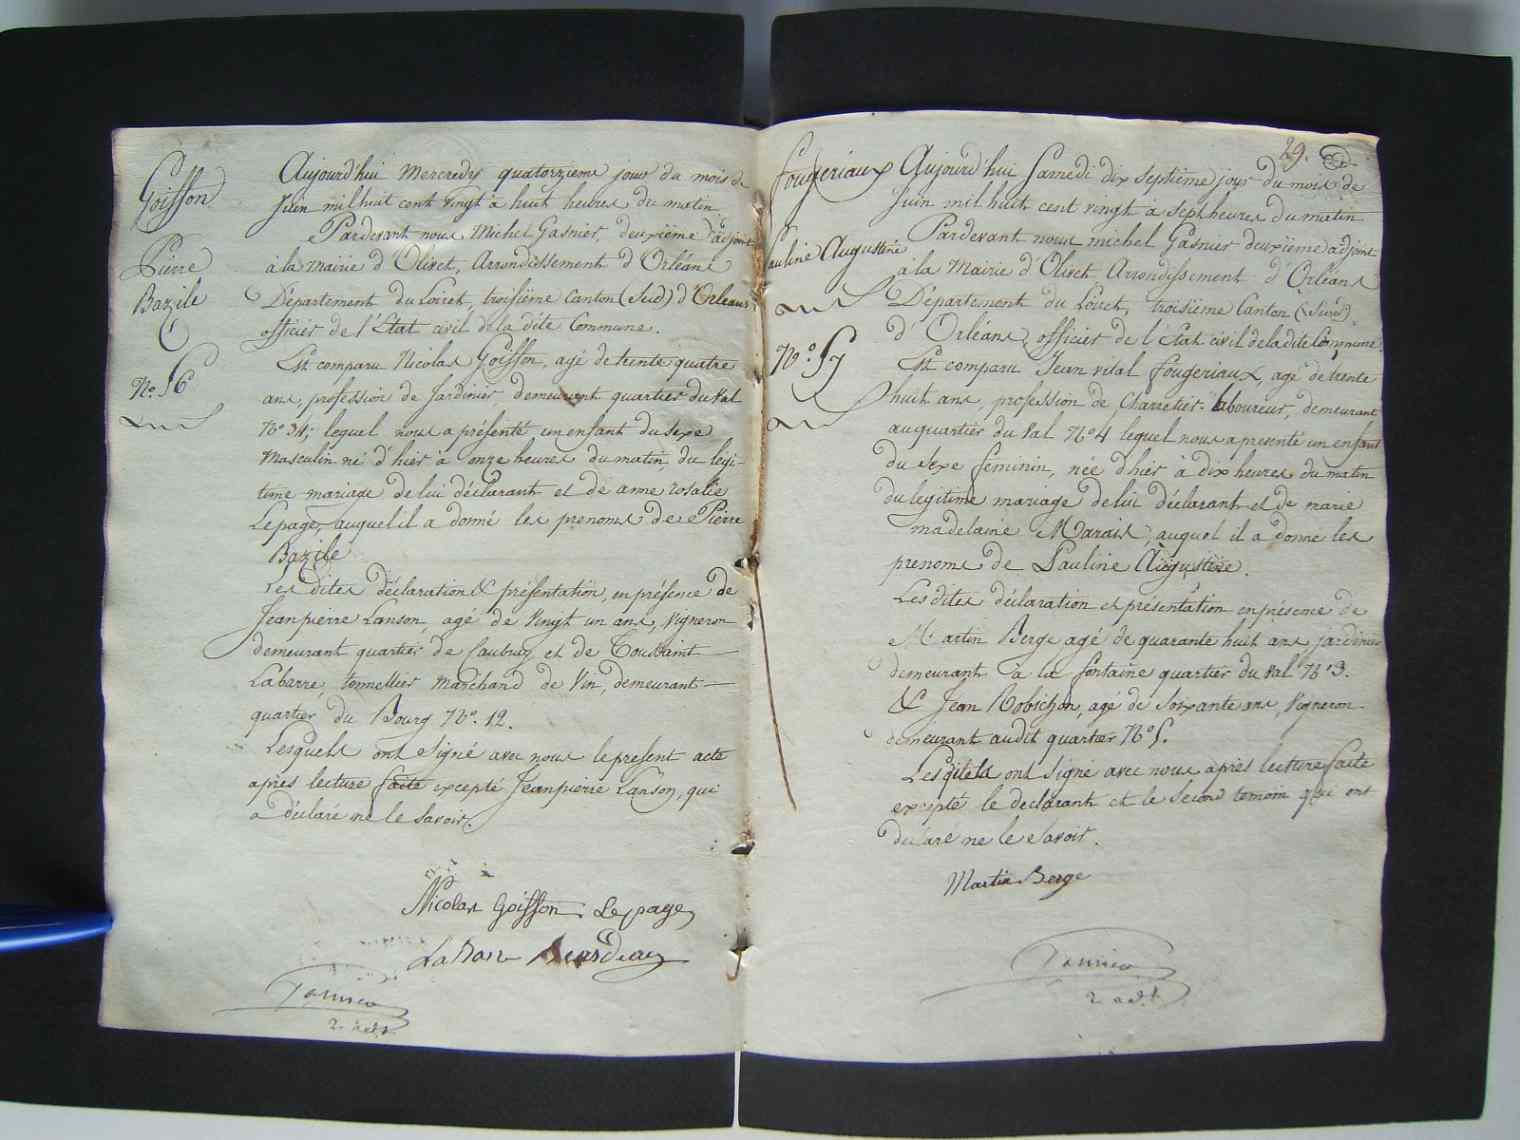 Goisson
Pierre
Bazile
No. 56
Aujourd'hui Mercredy quatorzieme jour du mois de
Juin mil huit cent vingt à huit heures du matin
Pardevant nous Michel Gasnier, deuxième adjoint
à la Mairie d'Olivet, Arrondissement d'Orléans
Département du Loiret, troisième Canton (Sud) d'Orleans
officier de l'Etat civil de la dite Commune.
Est comparu Nicolas Goisson, agé de trente quatre
ans, profession de Jardinier demeurant quartier du Val
No 34; lequel nous a présenté un enfant du sexe
Masculin né d'hier à onze heures du matin, du légi-
time mariage de lui déclarant et de anne rosalie
Lepage, auquel il a donné les prenoms de Pierre
Bazile
Les dites déclaration & présentation, en présence de
Jean pierre Lanson, agé de Vingt un ans, Vigneron
demeurant quartier de Caubray et de Toussaint
Labarre, tonnellier Marchand de Vin, demeurant
quartier du Bourg No. 12.
Lesquels ont signé avec nous le present acte
après lecture faite excepté Jean pierre Lanson, qui
a déclaré ne le savoir.
Nicolas Goisson Lepage
LaBare
2. adjt.
29.
fougeriaux
Pauline Augustine
No. 57
Aujourd'hui Samedi dix septième jour du mois de
Juin mil huit cent vingt à sept heures du matin
Pardevant nous michel Gasnier deuxième adjoint
à la Mairie d'Olivet Arrondissement d'Orléans
Département du Loiret, troisième Canton (Sud)
d'Orléans, officier de l'Etat civil de la dite Commune
Est comparu Jean vital fougeriaux, agé de trente
huit ans profession de Charretier-laboureur, demeurant
au quartier du Val No 4 lequel nous a presenté un enfant
du Sexe feminin, née d'hier à dix heures du matin
du legitime mariage de lui déclarant et de marie
madelaine Marais, auquel il a donné les
prenoms de Pauline Augustine.
Les dites déclaration et présentation en présence de
Martin Berge agé de quarante huit ans jardinier
demeurant à la fontaine quartier du Val No 3.
& Jean Robichon, agé de Soixante ans, Vigneron
demeurant audit quartier No 5.
Lesquels ont signé avec nous après lecture faite
excepté le declarant et le second temoin qui ont
declaré ne le savoir.
Martin Berge
2 adjt.